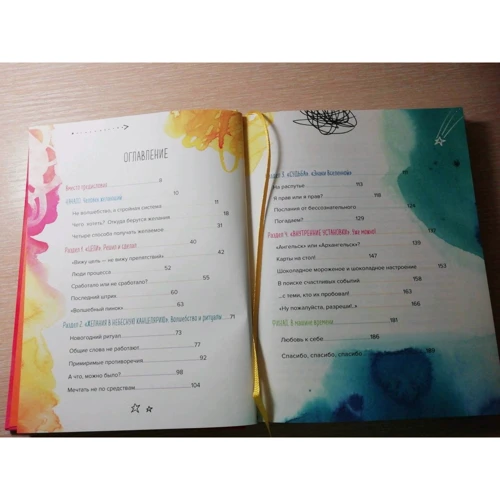 ОГЛАВЛЕНИЕ
Вместо предисловия 8
10
Не волшебство, а стройная система 11
Чего хотеть? Откуда берутся желания 18
Четыре способа получать желаемое 31
Раздел 1. «ЦЕЛИ». Решил и сделал 40
«Вижу цель — не вижу препятствий» 42
Люди процесса 52
Сработало или не сработало? 55
Последний штрих 60
«Волшебный пинок» 63
Раздел 2. «ЖЕЛАНИЯ В НЕБЕСНУЮ КАНЦЕЛЯРИЮ». Волшебство и ритуалы 71
Новогодний ритуал 73
Общие слова не работают 77
Примиримые противоречия 92
А что, можно было? 98
Мечтать не по средствам 104
Раздел 3. «СУДЬБА». «Знаки Вселенной» 111
На распутье 113
Я прав или я прав? 121
Послания от бессознательного 124
Погадаем? 129
Раздел 4. «ВНУТРЕННИЕ УСТАНОВКИ». Уже можно! 137
«Ангельск» или «Архангельск»? 139
Карты на стол! 147
Шоколадное мороженое и шоколадное настроение 153
В поиске счастливых событий 161
...с теми, кто их пробовал! 163
«Ну пожалуйста, разреши!..» 166
ФИНАЛ. В машине времени 181
Любовь к себе 186
Спасибо, спасибо, спасибо 189